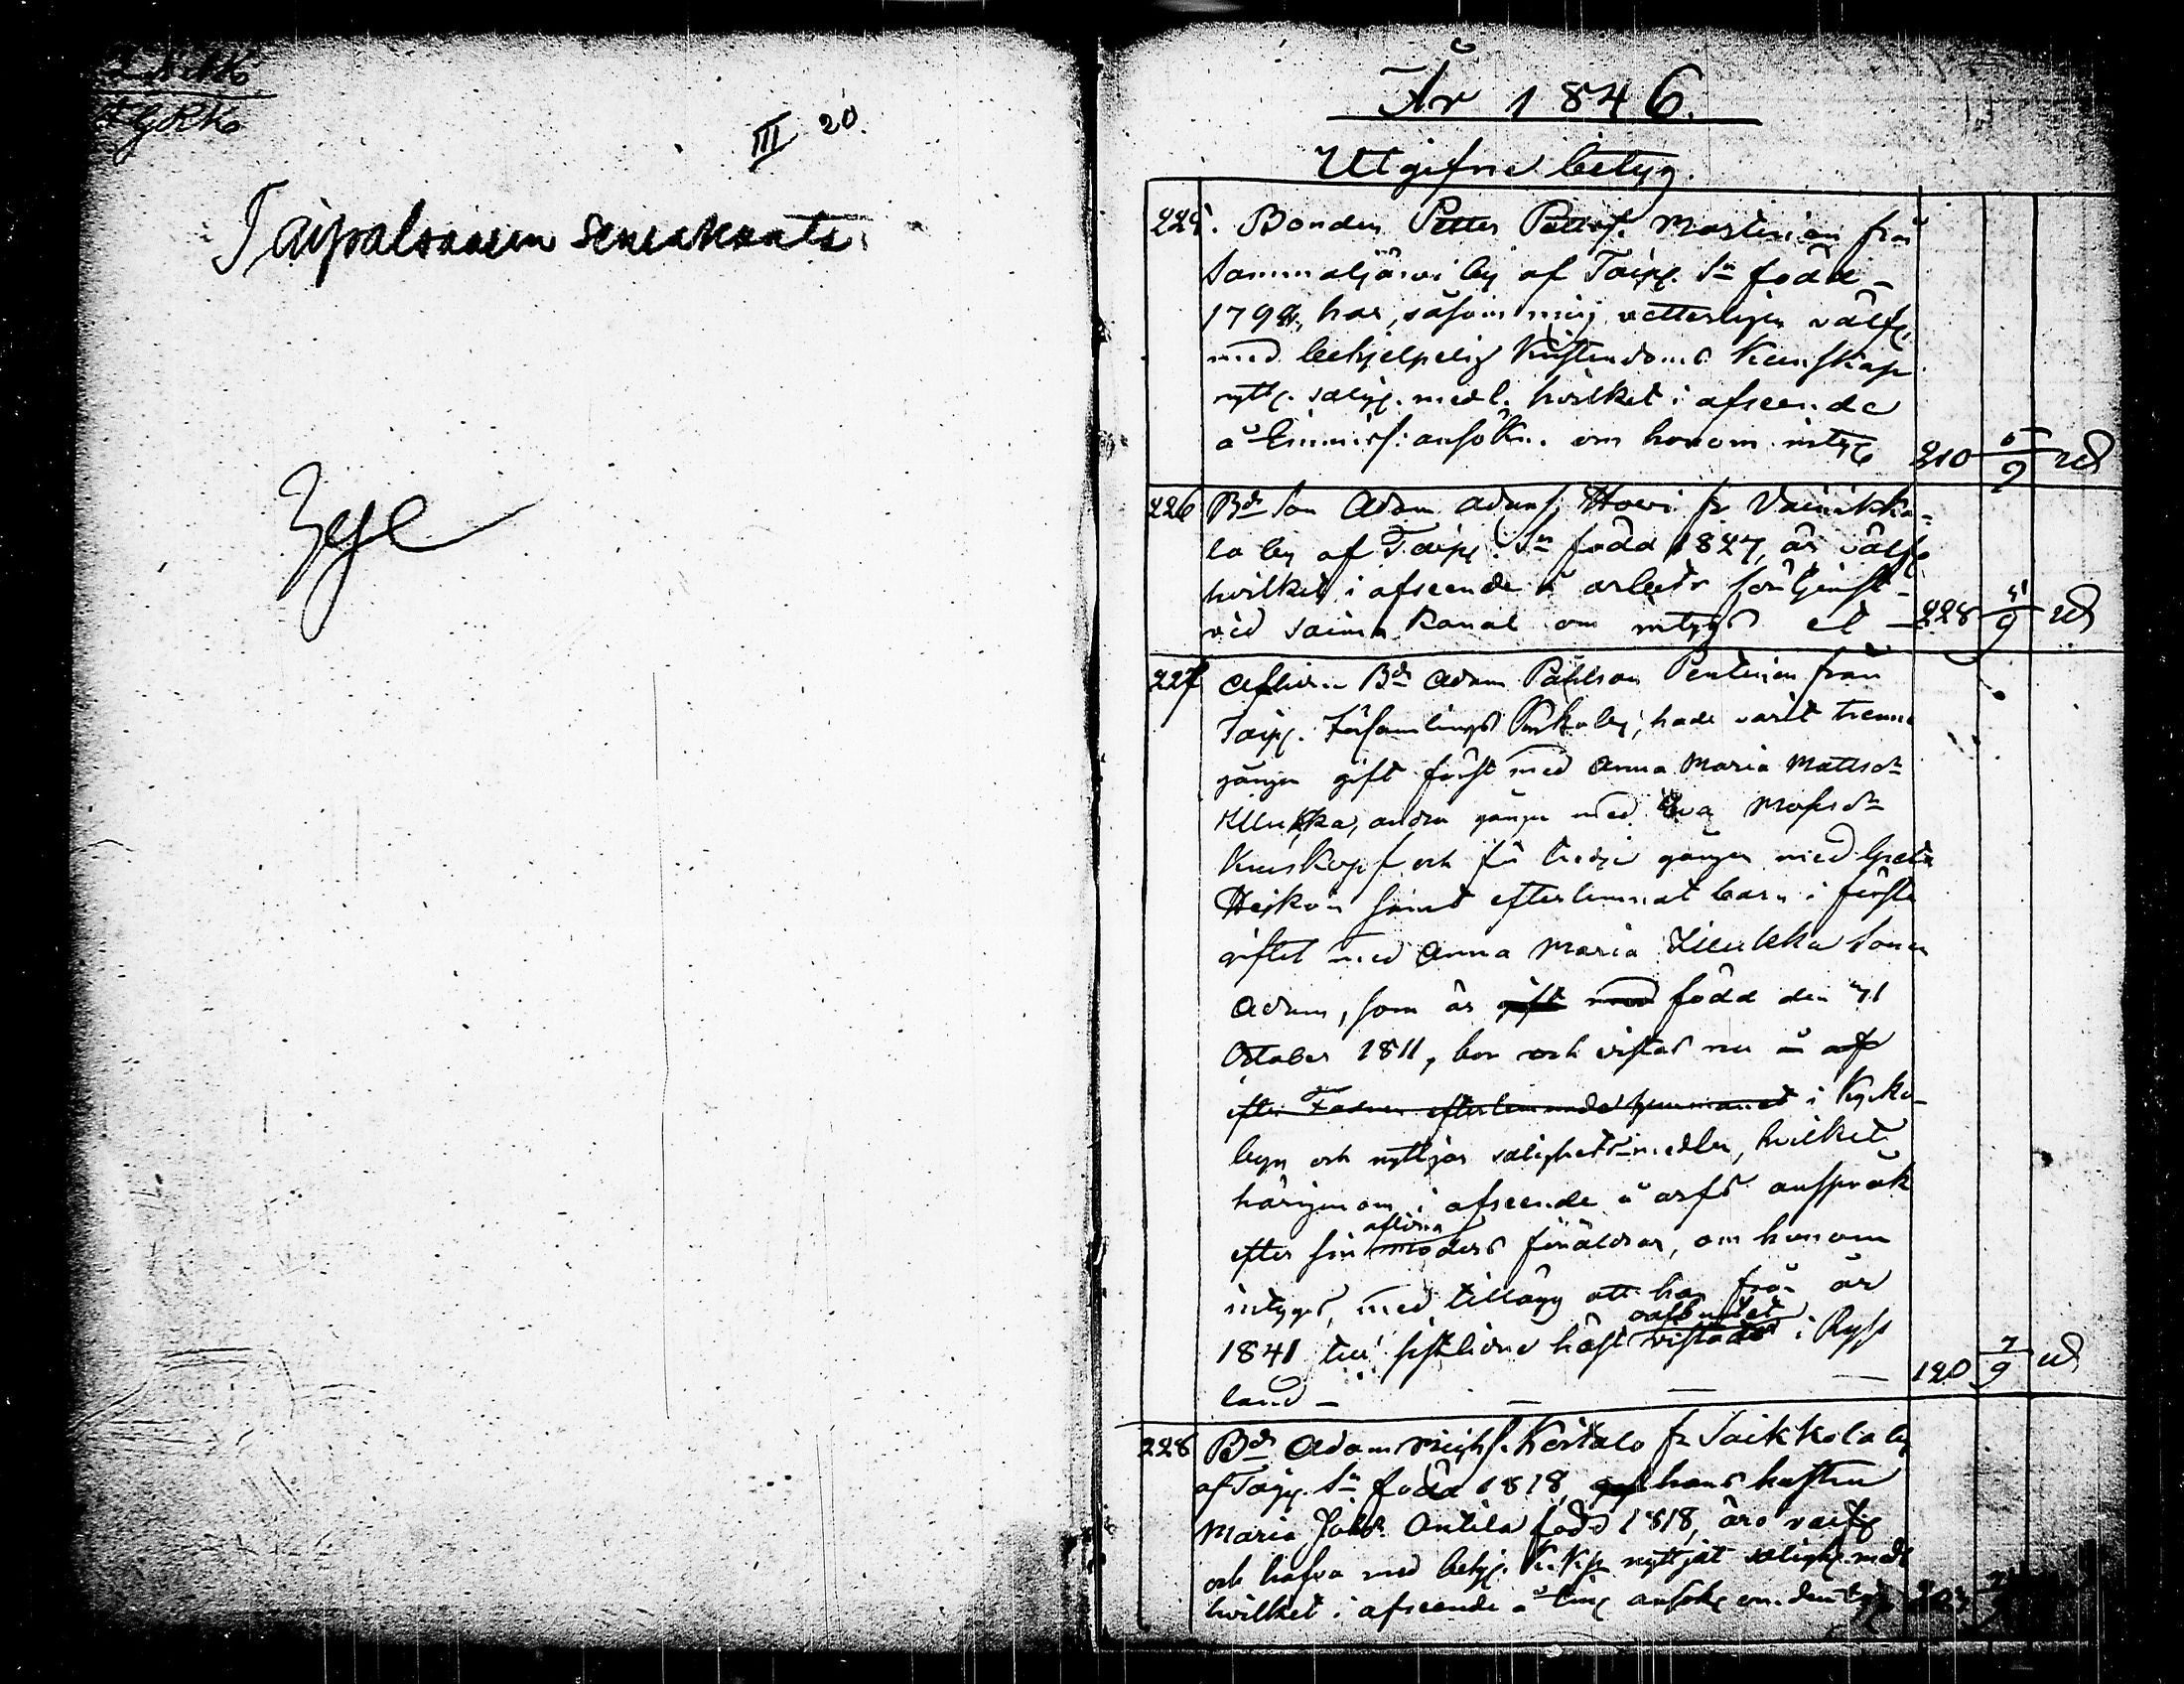 III 20.
Taipalsaaren seurakunta
År 1846.
Utgifne betyg.
225. Bonden Petter Petters. Martinen från
Sammaljärvi by af Taip. Sn född
179 har, såsom mig vetterligen välfr.
med behjelpelig Kristendoms Kunskap
nyttj. salig. medl. hvilket i afseende
å Emmiss: ansökn. om honom intyg 210 5/9 ud
226 Bd son Adam Adams. Howi fr Vainikka-
la by af Taip. Sn född 1827, är välfr
hvilket i afseende å arbets förtjenst
vid Saima Kanal om intygs et 228 5/9 ud
227 Aflidn. Bd Adam Påhlson Pentinen från
Taip. Församlings Kyrkoby, hade varit trenne
gånger gift först med Anna Maria Mattsdr
Illukka, andra gången med Eva Mosisdr
Kuuskopf och för tredje gången med Greta
Heikon samt efterlemnat barn i första
giftet med Anna Maria Illukka sonen
Adam, som är gift med född den 71
October 1811, bor och vistas nu å af
efter Fadren efterlemnade hemmanet i Kyrko-
byn och nyttjar salighetsmedlen, hvilket
härigenom i afseende å arfs anspråk
efter sin aflidna moders föräldrar, om honom
intygas, med tillägg att han från år
1841 till sistlidne höst vistats oafbrutet i Ryss
land – – – – 120 7/9 ud
228 Bd Adam Michs. fr Saikkola by
af Taip. Sn född 1818, hans hustru
Maria Jöksdr Antila född 1818, äro välfr
och hafva med behj. K. Kp nyttjat saligh. medl
hvilket i afseende å ting ansökn om dem